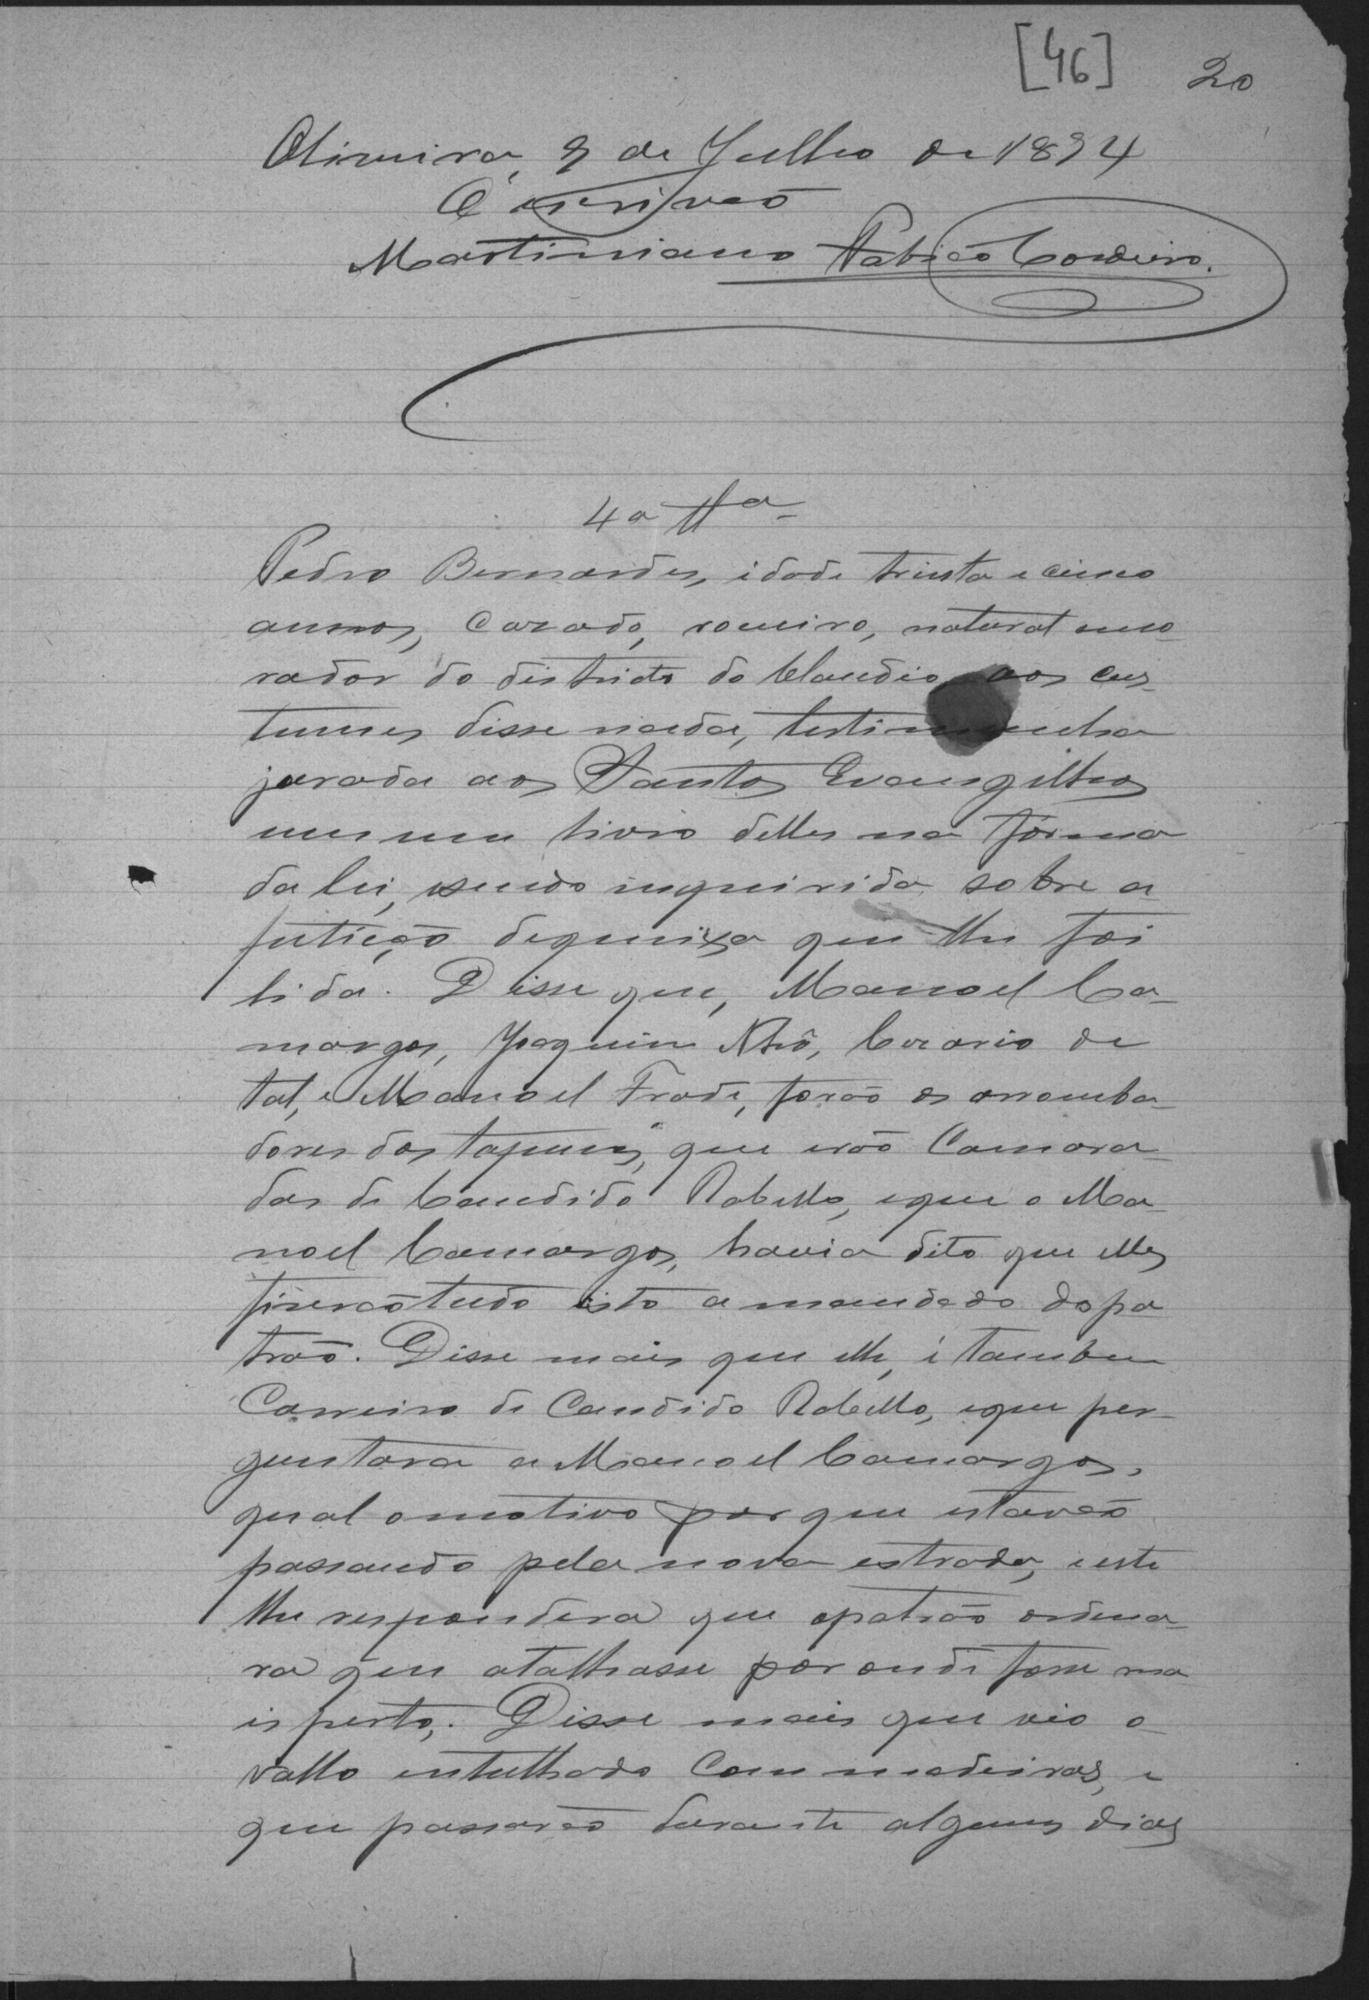 [46] 20
Oliveira, 9 de Julho de 1894
O escrivão
Martiniano Fabião Cordeiro.
4a tta
Pedro Bernardes, idade trinta e cinco
annos, cazado, roceiro, natural e mo
rador do districto do Claudio, aos cus
tumes disse nada, testimunha
jurada aos Santos Evangilhos
em um livro delles na fórma
da lei, sendo inquirida sobre a
petição de queixa que lhe foi
lida. Disse que, Manoel Ca-
margos, Joaquim Nhô, de
tal, e Manoel Frade, forão os arromba-
dores dos tapumes, que erão Camara-
das de Candido Rabello, e que o Ma-
noel Camargos, havia dito que elles
fiserão tudo isto a mandado do pa
trão. Disse mais que elle, é tambem
Carreiro de Candido Rabello, e que per-
guntara a Manoel Camargos,
qual o motivo por que estavão
passando pela nova estrada, e este
lhe respondera que o patrão ordena-
ra que atalhasse por onde fosse ma
is perto. Disse mais que vio o
vallo entulhado com madeiras, e
que passarão durante alguns dias